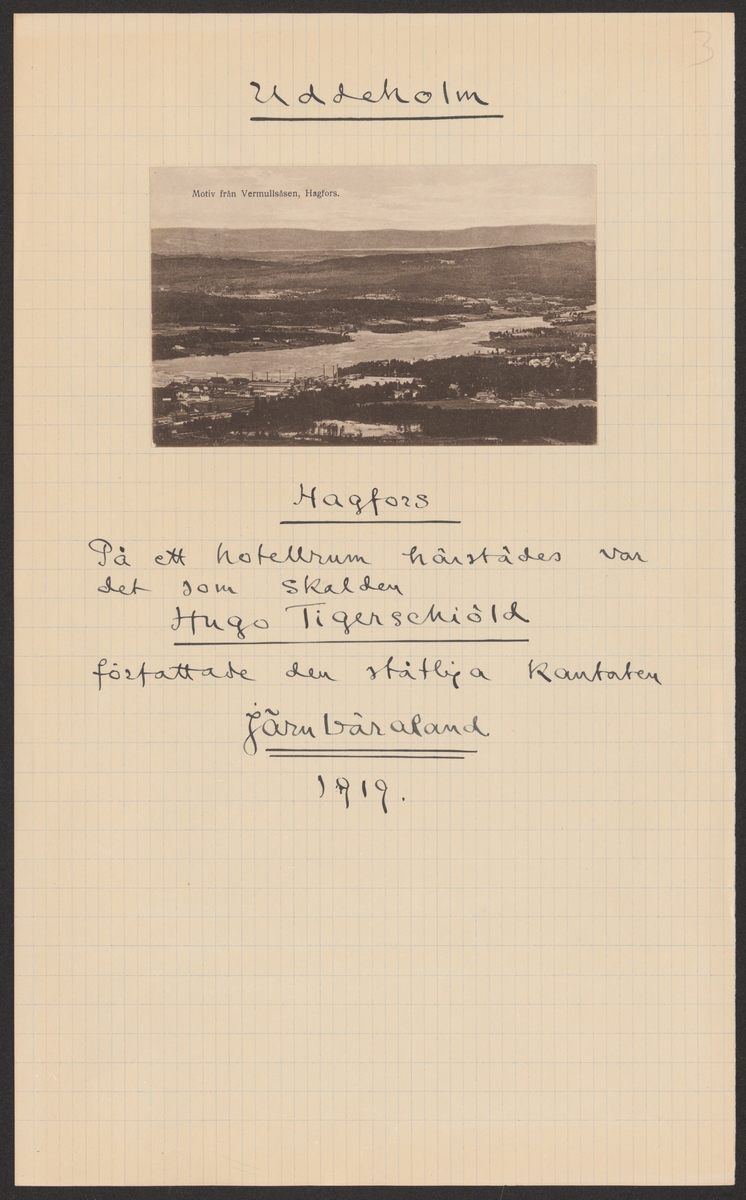 3
Uddeholm
Motiv från Vermullsåsen, Hagfors.
Hagfors
På ett hotellrum härstädes var
det som skalden
Hugo Tigerschiöld
författade den ståtliga kantaten
Järnbäraland
1919.